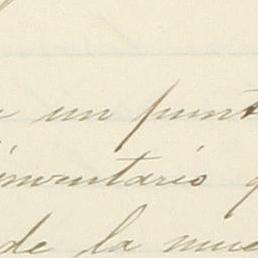 un punt
inventario
de la mue